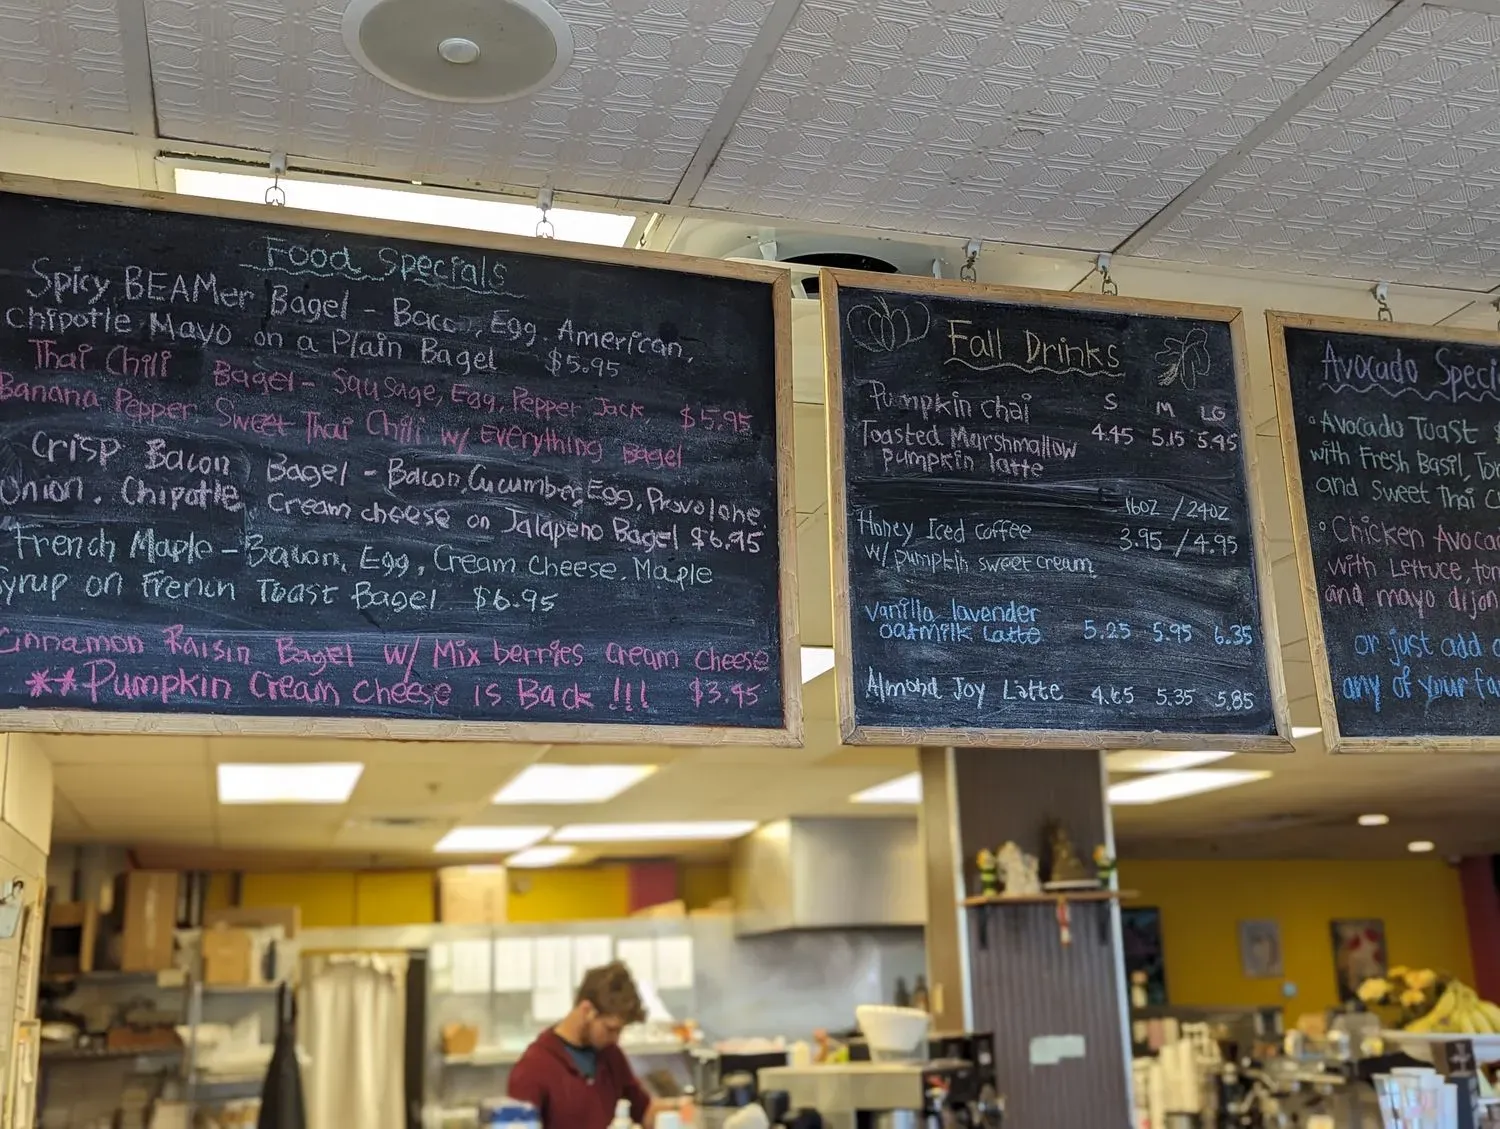 Food Specials
Spicy BEAMer Bagel - Bacon, Egg, American,
chipotle Mayo on a Plain Bagel $5.95
Thai Chili Bagel - Sausage, Egg, Pepper Jack, $5.95
Banana Pepper Sweet Thai Chili w/ Everything Bagel
Crisp Bacon Bagel - Bacon, Cucumber, Egg, Provolone
Onion, Chipotle Cream cheese on Jalapeno Bagel $6.95
French Maple - Bacon, Egg, Cream cheese, Maple
Syrup on French Toast Bagel $6.95
Cinnamon Raisin Bagel w/ Mix berries cream cheese
**Pumpkin Cream cheese is Back !!! $3.95
Fall Drinks
Pumpkin chai S M LG
Toasted Marshmallow 4.45 5.15 5.45
pumpkin latte
16oz / 24oz
Honey Iced Coffee 3.95 / 4.95
w/ pumpkin sweet cream
Vanilla lavender
oatmilk Latte 5.25 5.95 6.35
Almond Joy Latte 4.65 5.35 5.85
Avocado Speci
• Avocado Toast $
with Fresh Basil, Tom
and Sweet Thai C
• Chicken Avoca
with Lettuce, tom
and mayo dijon
or just add a
any of your fa